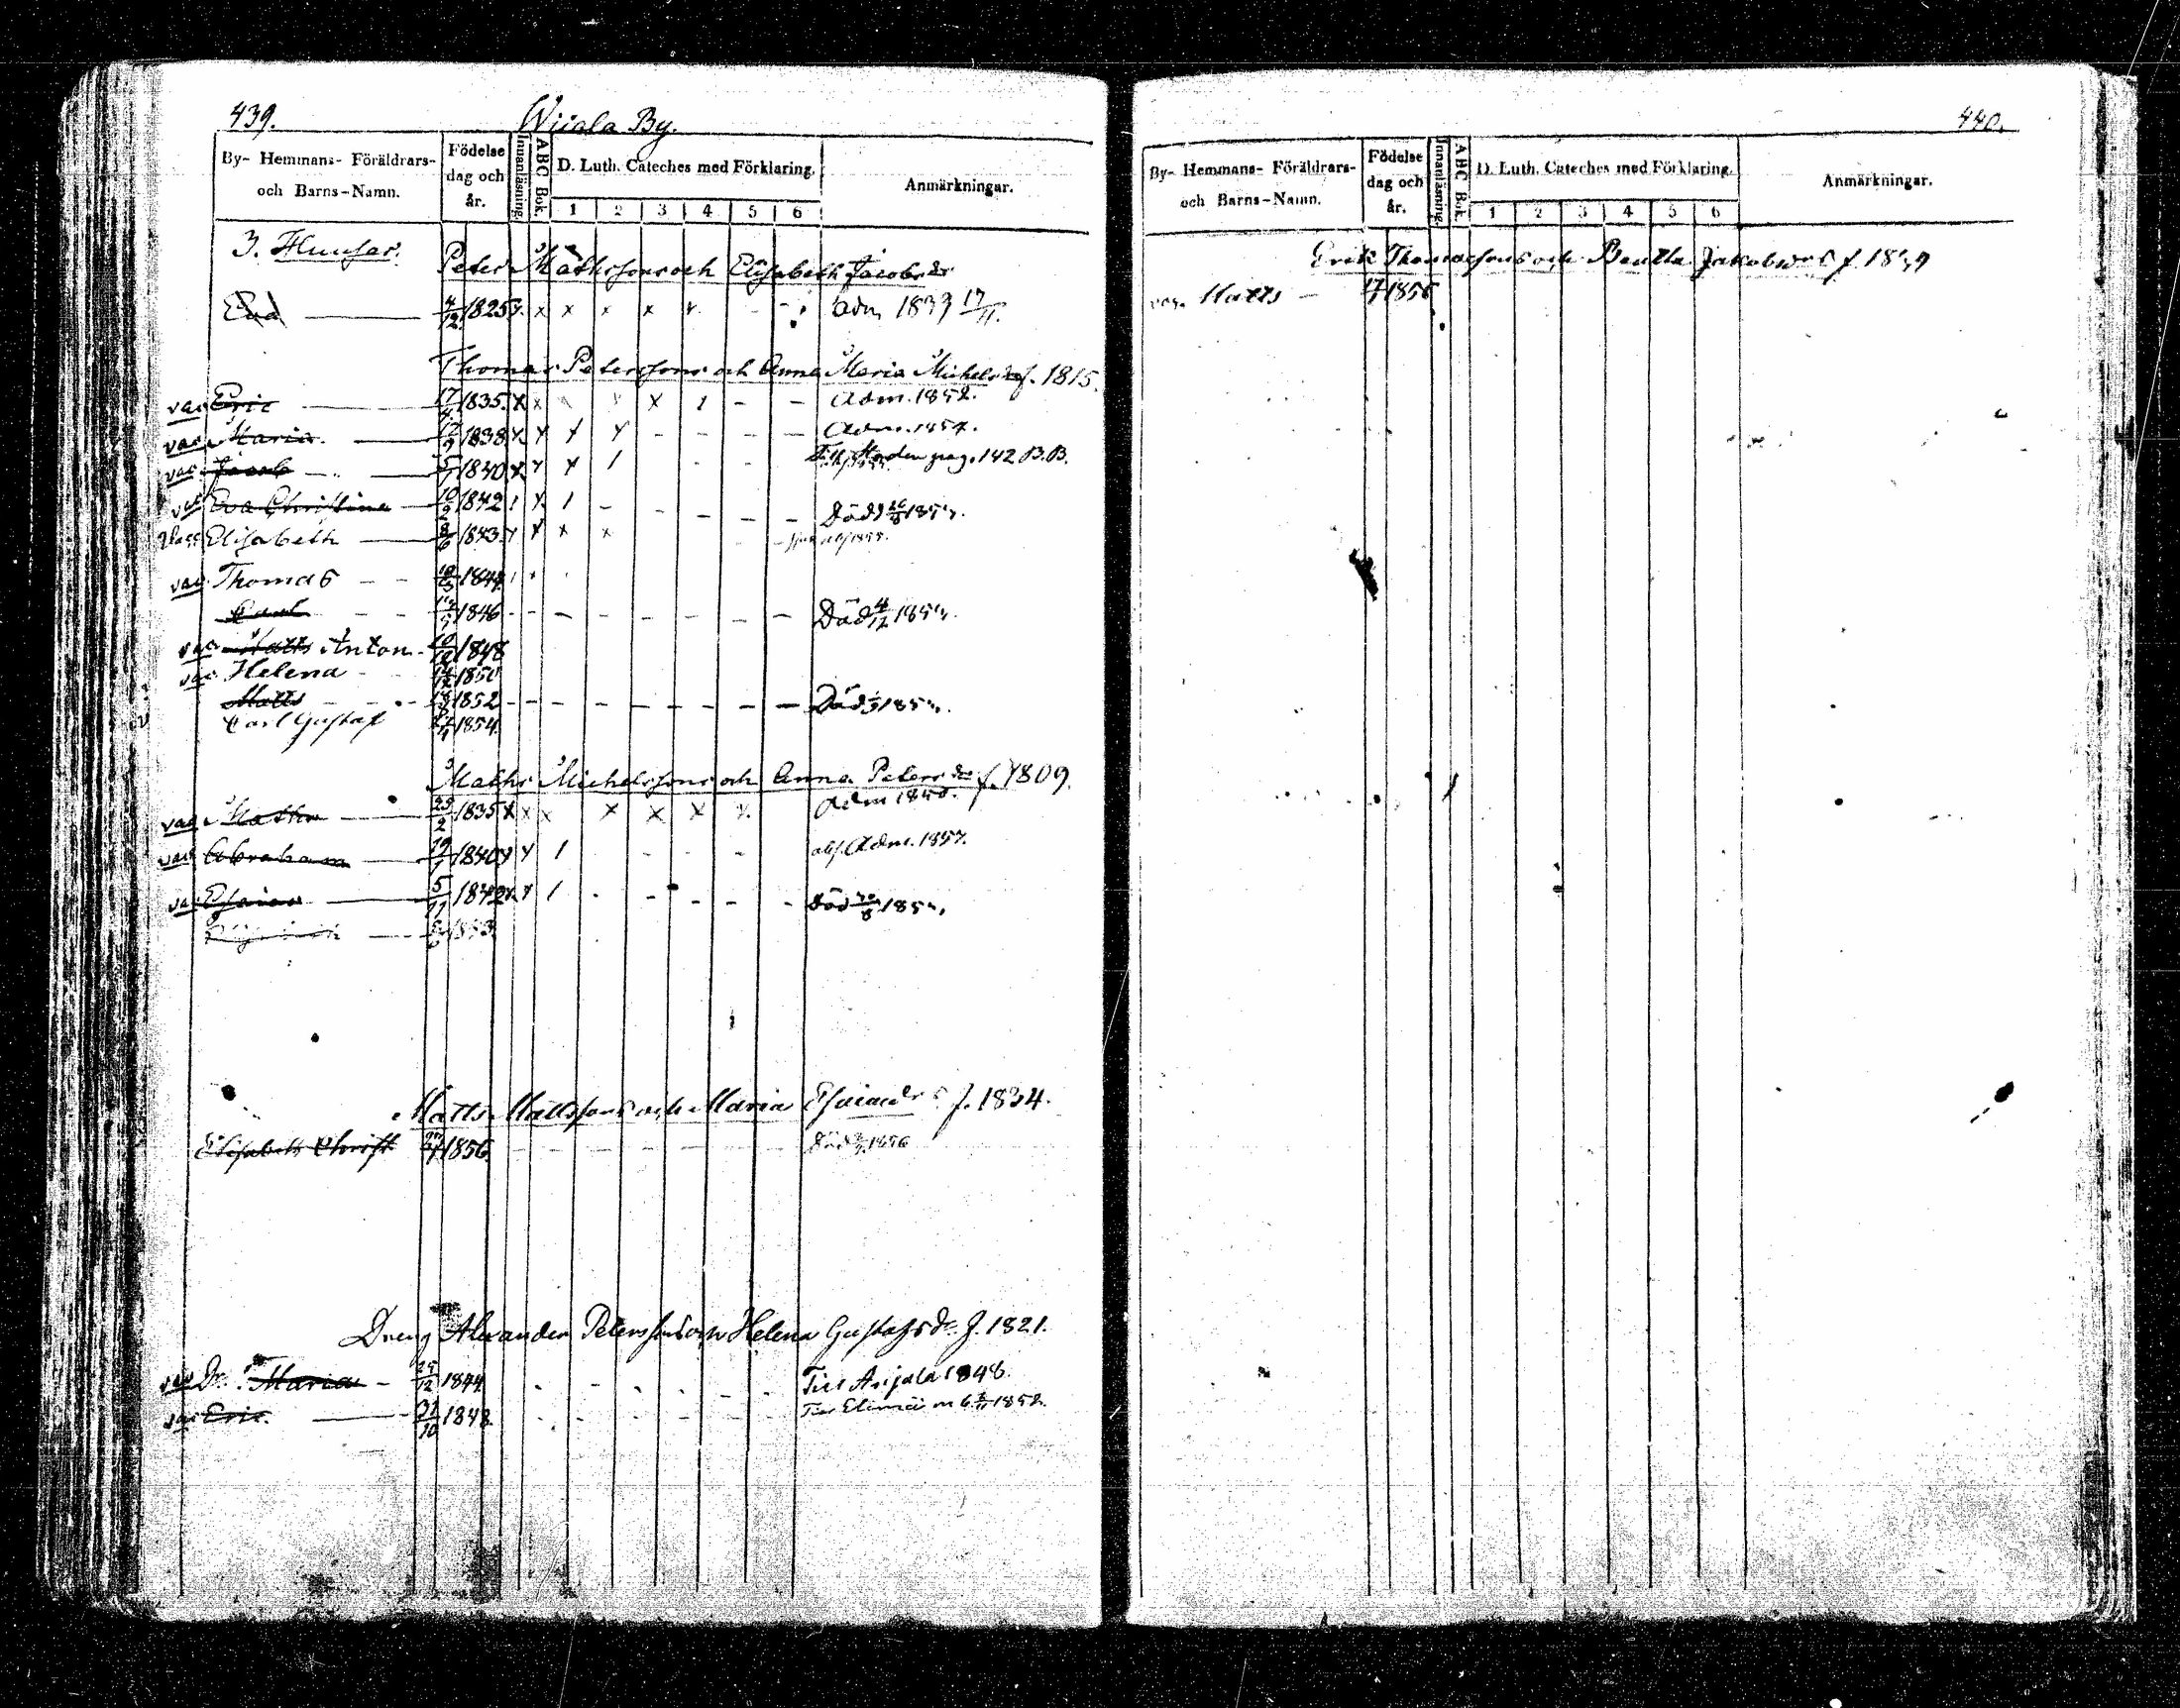 439.
Wiiala By.
By- Hemmans- Föräldrars- och Barns-Namn.
Födelse dag och år.
Innanläsning.
ABC Bok.
D. Luth. Cateches med Förklaring.
1 2 3 4 5 6
Anmärkningar.
3. Huusar.
Peter Mathssons och Elisabeth Jacobsdr
Eva 4/12 1825 x x x x x x - - Adm 1839 17/11.
Thomas Peterssons och Anna Maria Michelsdr f. 1815.
vac Eric 17/4 1835. x x x x 1 - - Adm. 1852.
vac Maria 12/9 1838 x x x x - - - - Adm. 1857.
vac Jacob 5/1 1840 x x x 1 - - Till Staden pag. 142 B.B.
vac Eva Christina 10/9 1842 1 x 1 - - - - Död 1857.
Elisabeth 8/6 1843 x x x x
vac Thomas 1844
1846 - - - - - - - Död 4/12 185
vac Matts Anton 10/12 1848
vac Helena 1850
Matts 1852 - - - - - - - Död 185
Carl Gustaf 1854.
Maths Michelssons och Anna Petersdr f. 1809.
vac Maths 25/2 1835 x x x x x x x Adm 1850.
vac Abraham 1840 x x 1 - - - Adm. 1857.
vac Esaias 5/11 1842 x x 1 - - - - - Död 185
1843.
Matts Mattssons och Maria Esaiaedr f. 1834.
Elisabeth Christ 1856. - - - - - - Död 1856
Dreng Alexander Peterssons och Helena Gustafsdr f. 1821.
vac Dr. Maria - 25/12 1844 - - - - - - Till Anjala 1848.
vac Eric. 31/10 1848 - - - - - - Till Elimä 1852.
440.
By- Hemmans- Föräldrars- och Barns-Namn.
Födelse dag och år.
Innanläsning.
ABC Bok.
D. Luth. Cateches med Förklaring.
1 2 3 4 5 6
Anmärkningar.
Erik Thomassons och Beatta Jakobsdr f. 18
vac. Matts - 1856